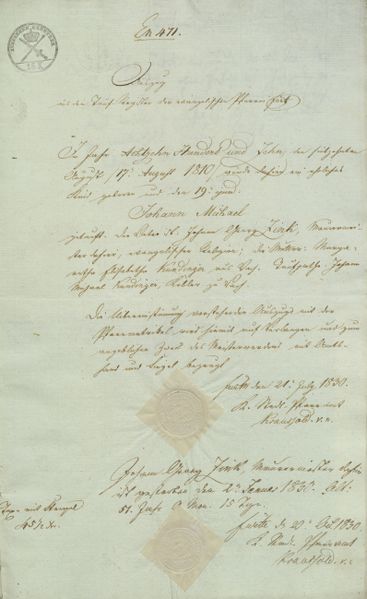 En 471.
Auszug
aus dem Tauf Register der evangelischen Pfarrei Fürth
Im Jahr Achtzehn Hundert und Zehn, den siebzehnten
August /17. August 1810/ wurde dahier ein eheliches
Kind geboren und den 19. ejusd.
Johann Michael
getauft. Der Vater ist Johann Georg Zink, Maurermei-
ster dahier, evangelischer Religion, die Mutter: Marga-
retha Elisabetha
Michael
Die Uebereinstimmung vorstehenden Auszugs mit der
Pfarrmatrikel wird hiermit auf Verlangen und zum
angeblichen Zweck des Meisterwerdens mit Amts
hand und Siegel bezeugt
Fürth den 21. July 1830.
K. Stadt Pfarramt
Kraußold. v. n.
Johann Georg Zink, Maurermeister dahier
ist gestorben den 2. 1830. Alt:
51. Jahr 0 Mon. 15 Tage.
Fürth den 20. Oct. 1830.
K. Stadt Pfarramt
Kraußold. v. n.
Tax mit Stempel
45½ Xr.